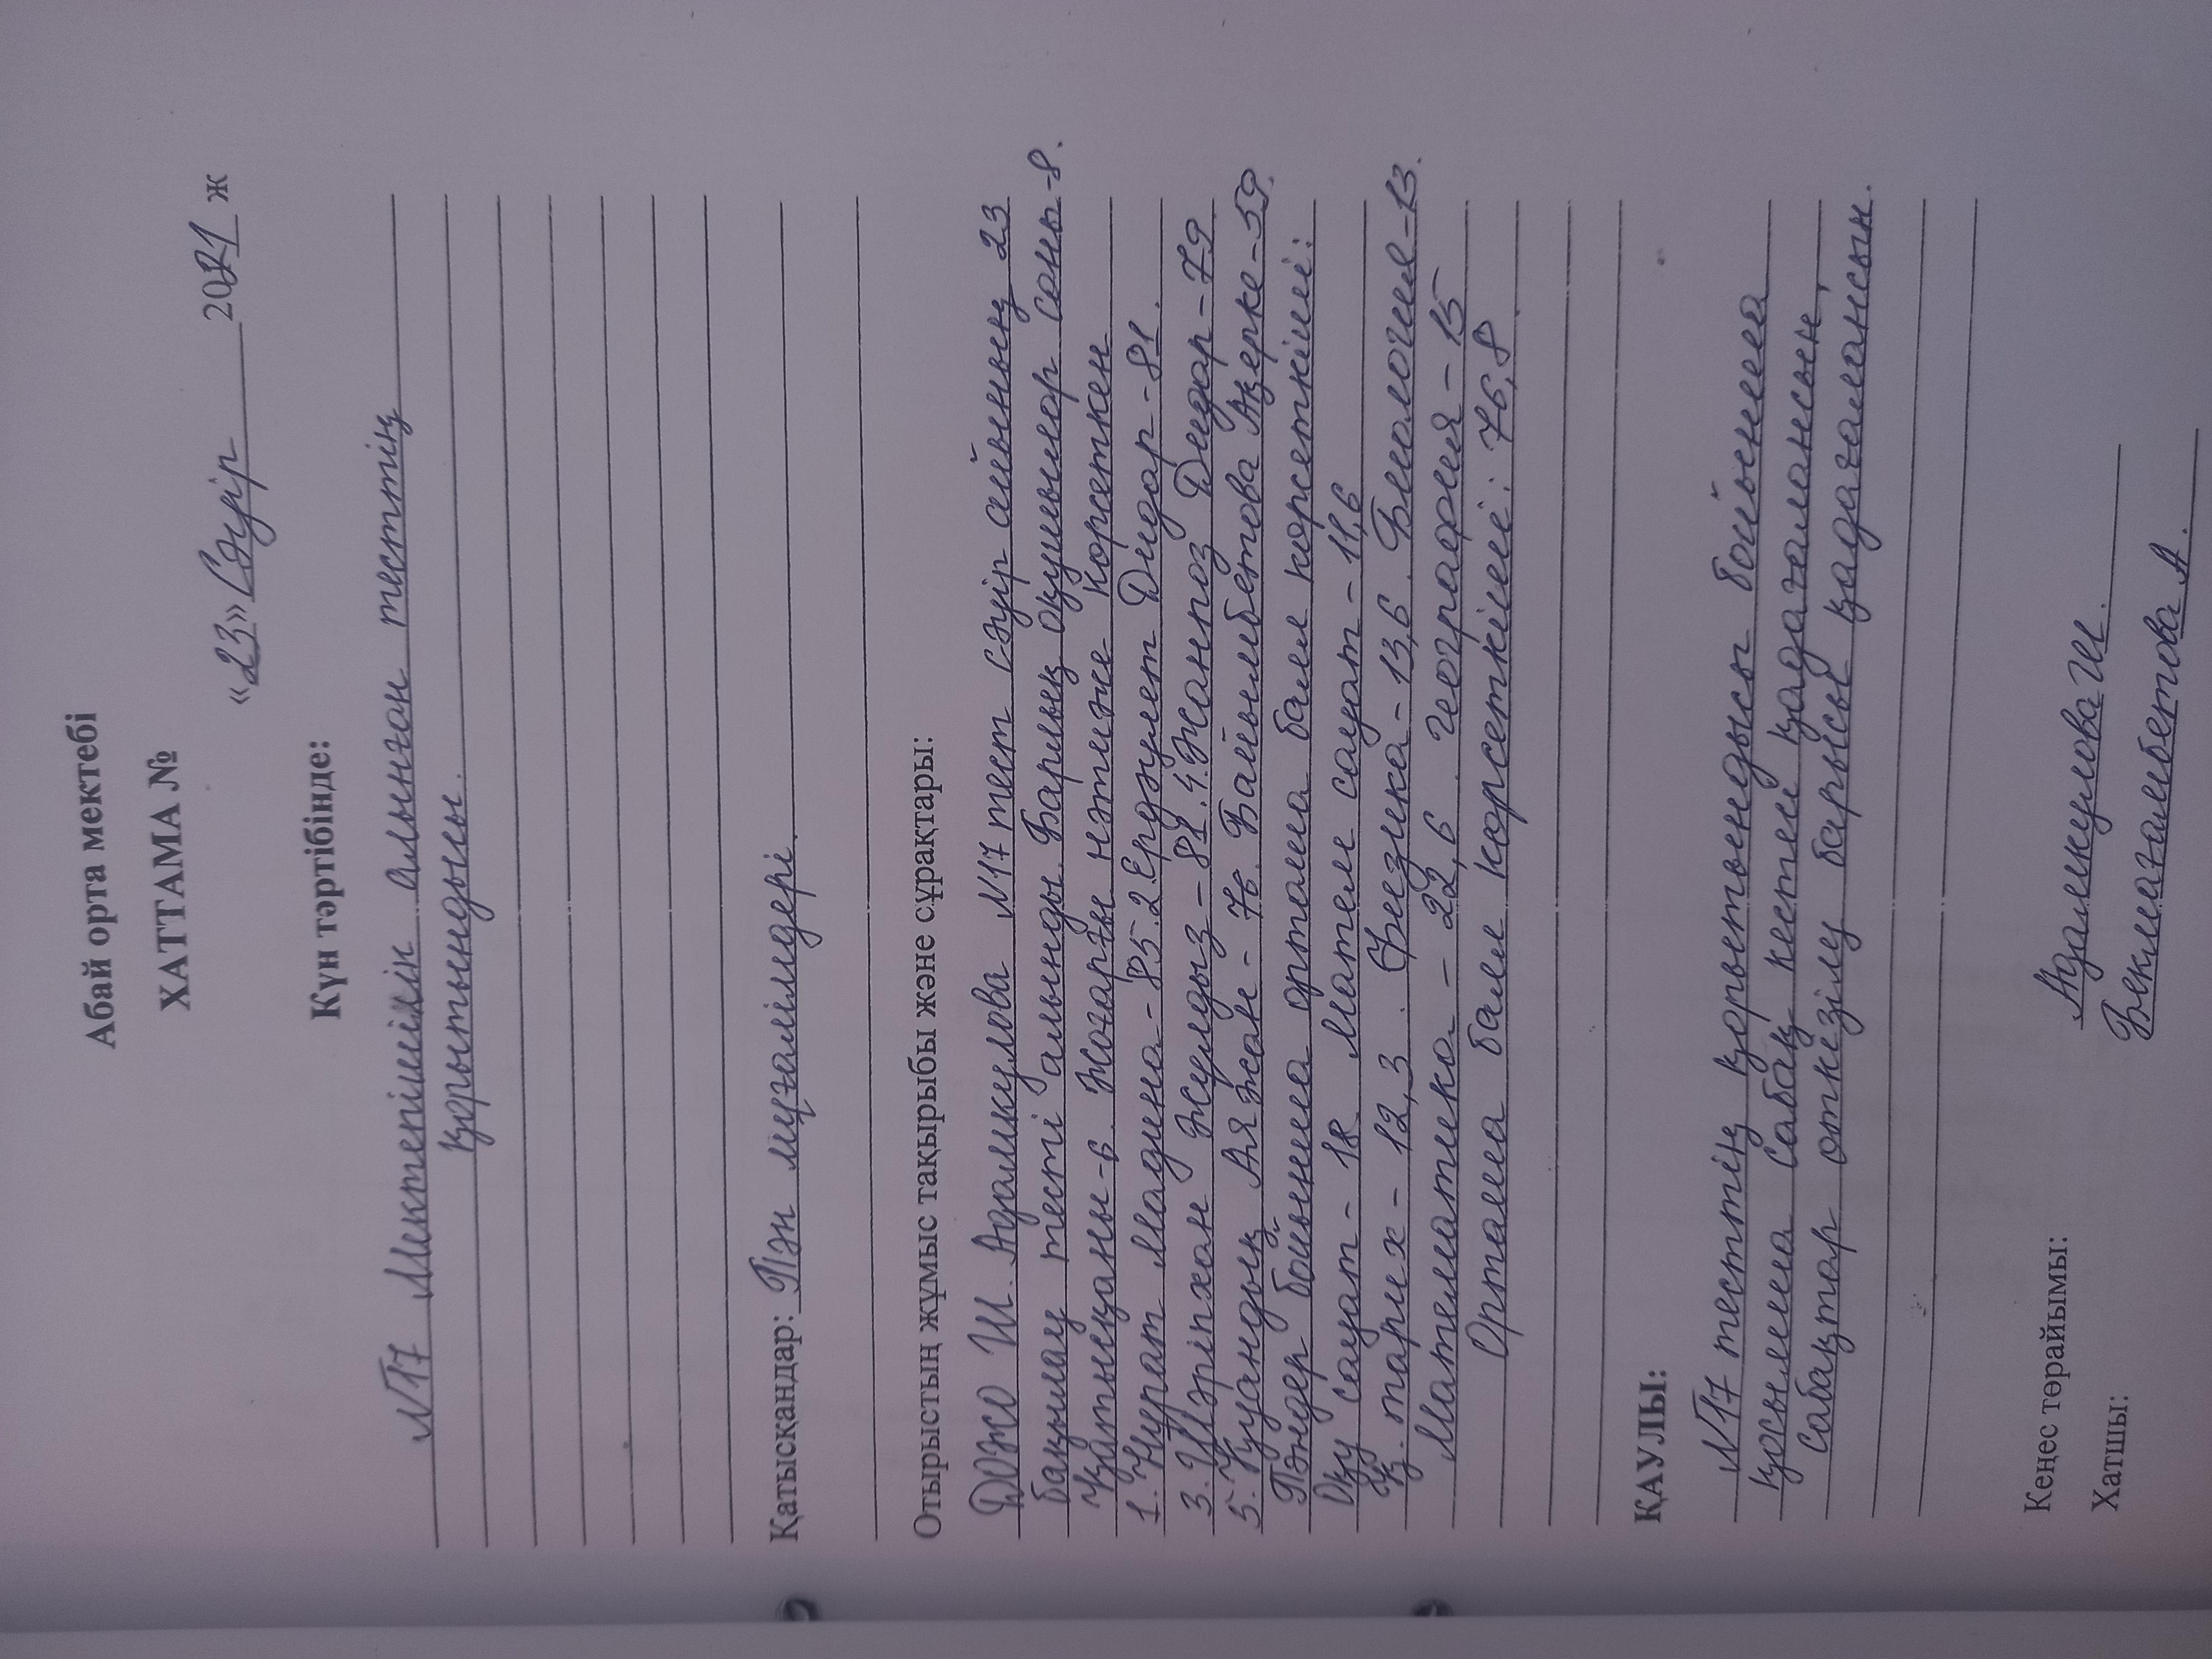 Абай орта мектебі
ХАТТАМА №
«23» Сәуір 2021 ж
Күн тәртібінде:
№17 Мектепішілік алынған тесттің
қорытындысы.
Қатысқандар: Пән мұғалімдері.
Отырыстың жұмыс тақырыбы және сұрақтары:
ДОЖО Ш. Адамкулова №17 тест сәуір айының 23
бақылау тесті алынды. Барлық оқушылар саны-8.
Қатысқаны-6. Жоғарғы нәтиже көрсеткен
1. Нурат Мадина - 85. 2. Ердәулет Дидар - 81.
3. Шәріпхан Жулдыз - 81. 4. Жанғоз Дидар - 79
5. Қуандық Аяжан - 76. Байымбетова Ақерке - 59.
Пәндер бойынша орташа балл көрсеткіші:
Оқу сауат - 18 Матем сауат - 11,6
Қ. тарих - 12,3. Физика - 13,6. Биология - 13.
Математика - 22,6. География - 15
Орташа балл көрсеткіші: 76,8
ҚАУЛЫ:
№17 тесттің қорытындысы бойынша
қосымша сабақ кестесі қадағалансын,
сабақтар өткізілу барысы қадағалансын.
Кеңес төрайымы: Адамкулова Ш.
Хатшы: Бекмағамбетова А.